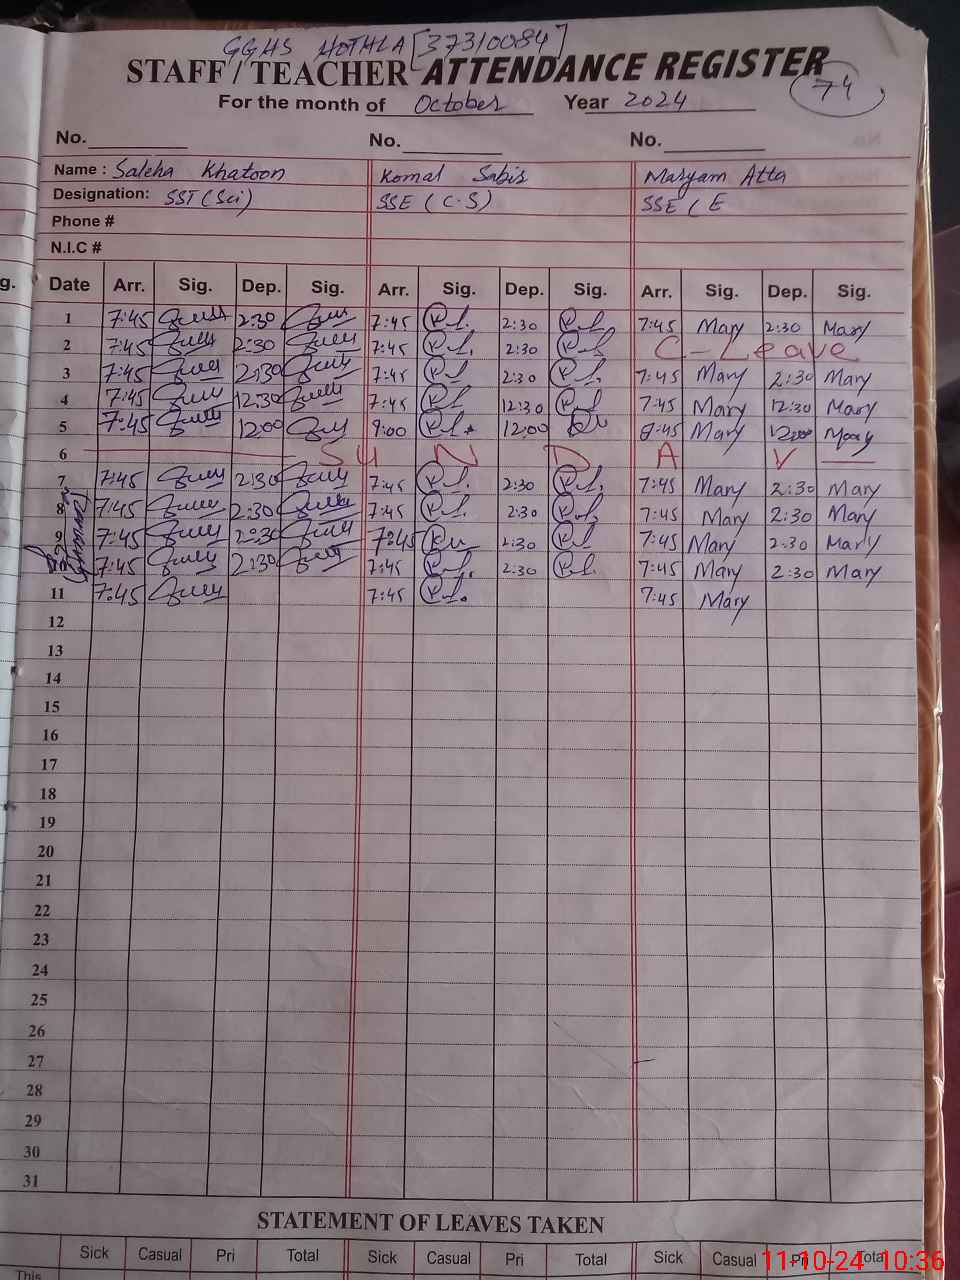 GGHS HOTHLA [37310084]
STAFF / TEACHER ATTENDANCE REGISTER
74
For the month of October Year 2024
No. No. No.
Name : Saleha Khatoon Komal Sabir Maryam Atta
Designation: SST (Sci) SSE (C.S) SSE (E
Phone #
N.I.C #
g. Date Arr. Sig. Dep. Sig. Arr. Sig. Dep. Sig. Arr. Sig. Dep. Sig.
1 7:45 2:30 7:45 2:30 7:45 Mary 2:30 Mary
2 7:45 2:30 7:45 2:30 C-Leave
3 7:45 2:30 7:45 2:30 7:45 Mary 2:30 Mary
4 7:45 12:30 7:45 12:30 7:45 Mary 12:30 Mary
5 7:45 12:00 9:00 12:00 8:45 Mary 12:00 Mary
6 S U N D A Y
7 7:45 2:30 7:45 2:30 7:45 Mary 2:30 Mary
8 7:45 2:30 7:45 2:30 7:45 Mary 2:30 Mary
9 7:45 2:30 7:45 2:30 7:45 Mary 2:30 Mary
7:45 2:30 7:45 2:30 7:45 Mary 2:30 Mary
11 7:45 7:45 7:45 Mary
12
13
14
15
16
17
18
19
20
21
22
23
24
25
26
27
28
29
30
31
STATEMENT OF LEAVES TAKEN
Sick Casual Pri Total Sick Casual Pri Total Sick Casual Pri Total
This
11-10-24 10:36